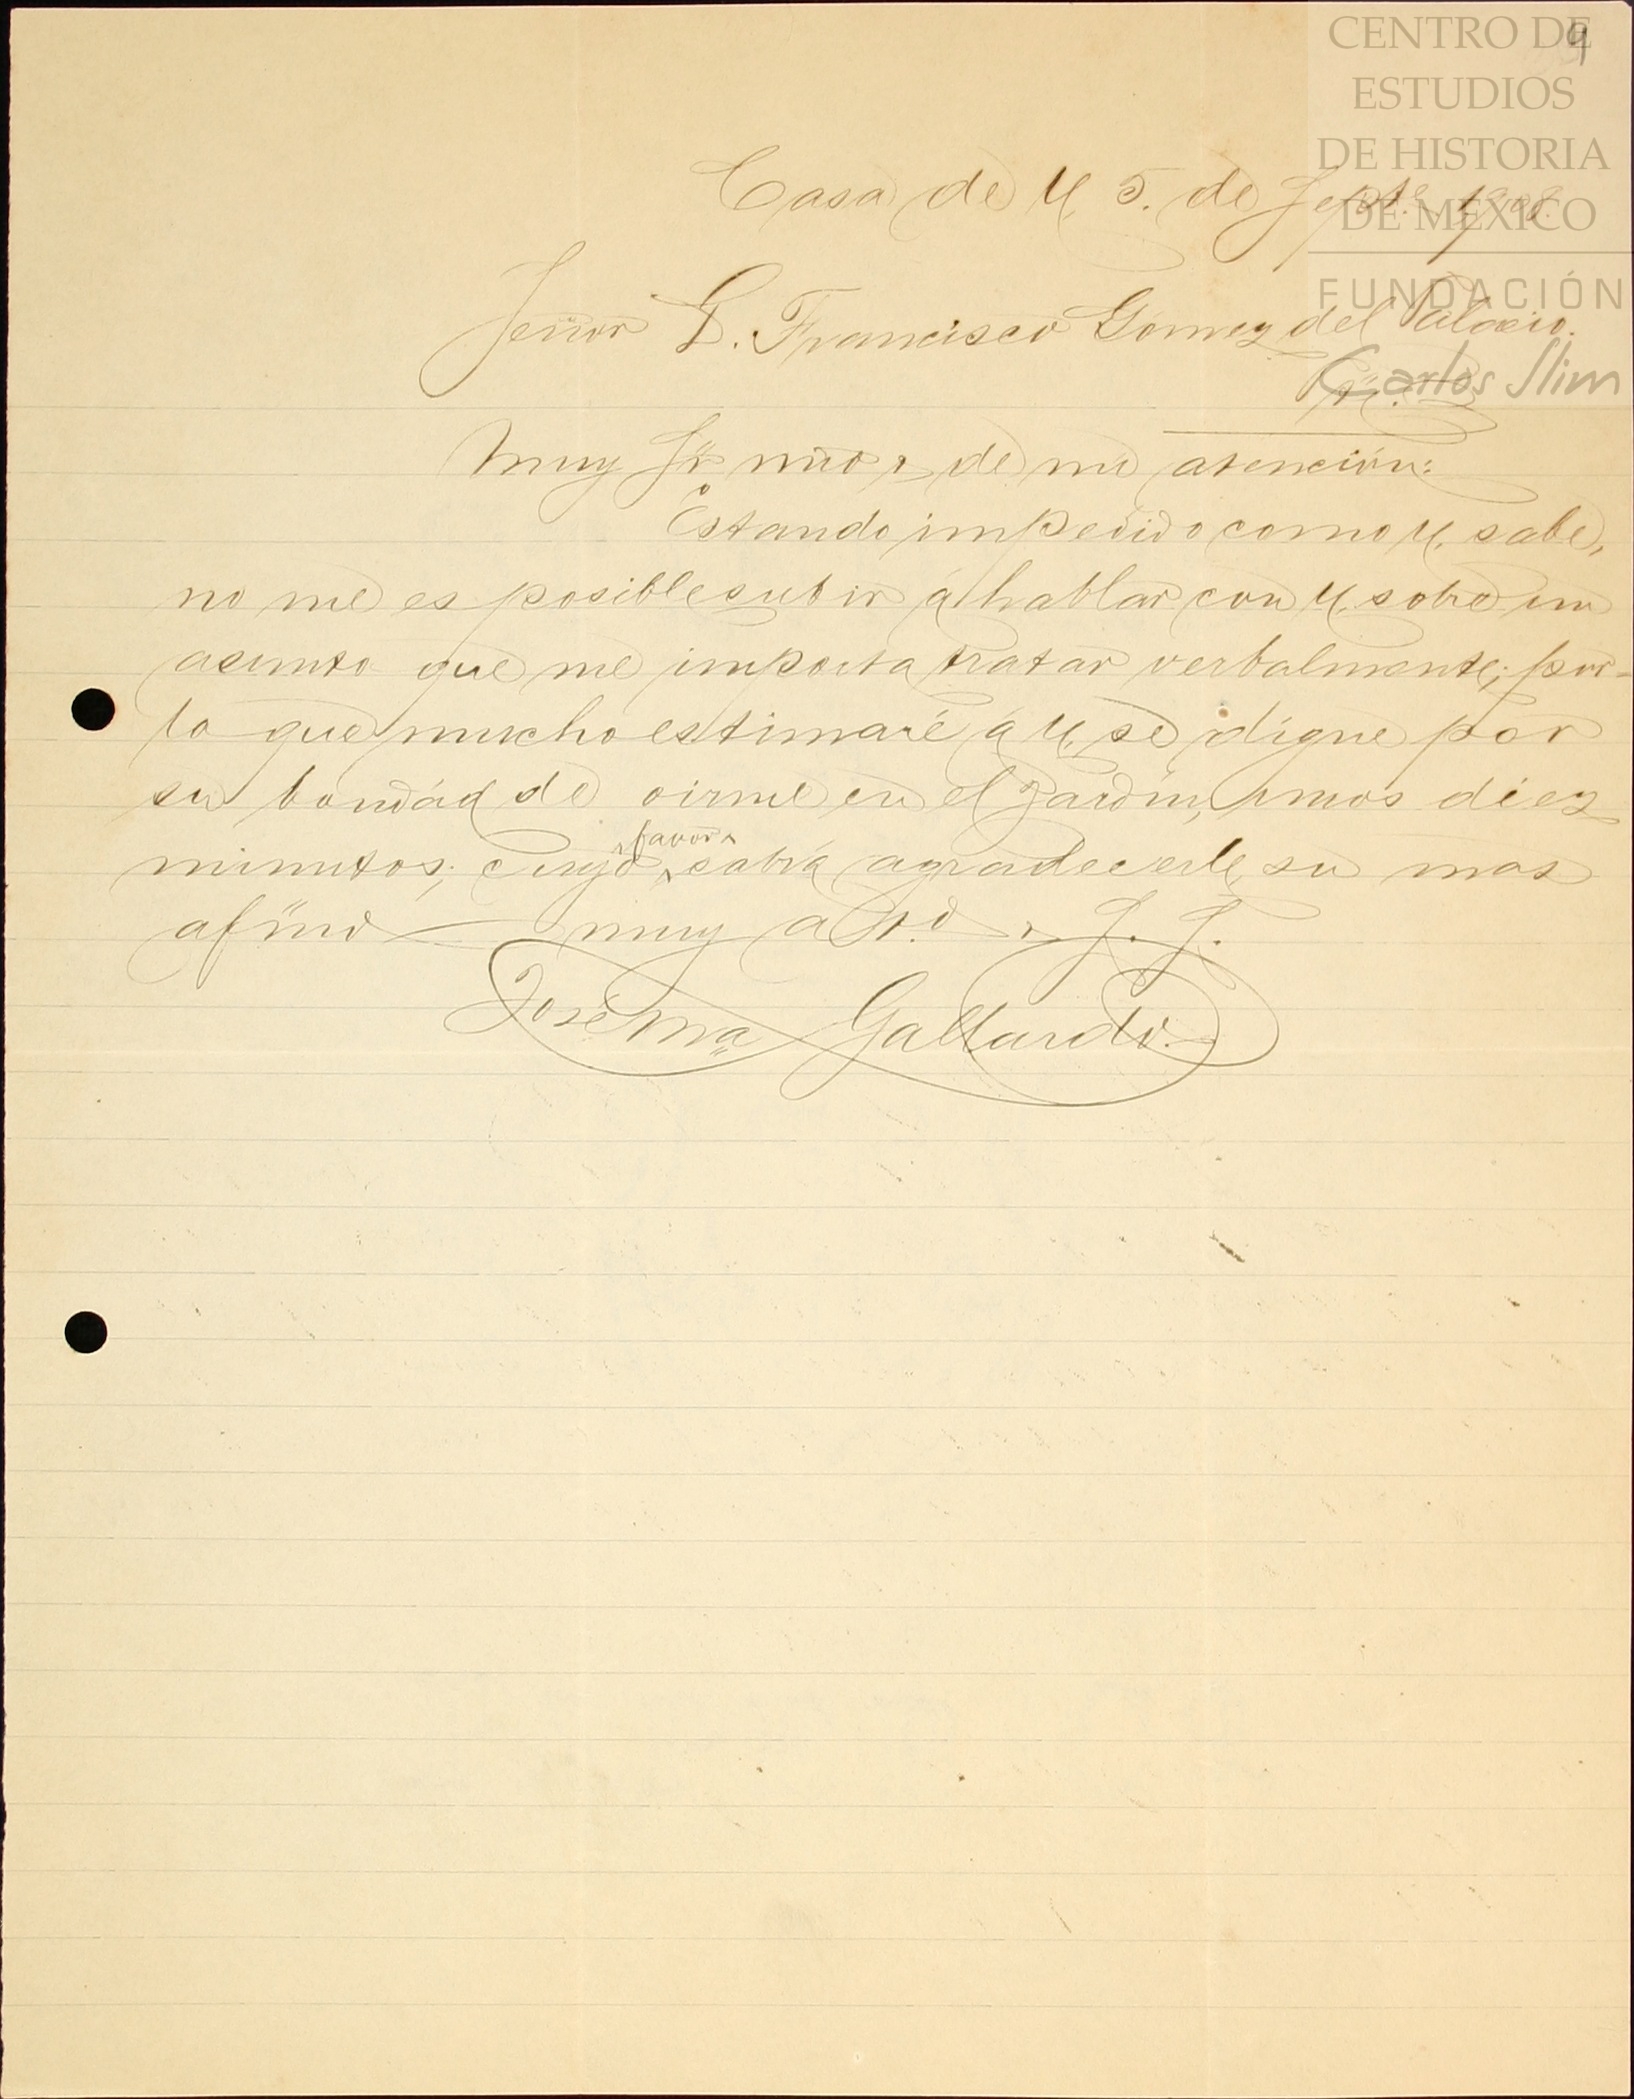 CENTRO DE
ESTUDIOS
DE HISTORIA
DE MÉXICO
FUNDACIÓN
Carlos Slim
9
Casa de U. 5. de Septe. 1908.
Señor D. Francisco Gómez del Palacio.
Muy Sr. mío y de mi atención:
Estando impedido como U. sabe,
no me es posible subir á hablar con U. sobre un
asunto que me importa tratar verbalmente; por-
lo que mucho estimaré á U. se digne por
su bondád de oirme en el Jardín, unos diez
minutos; cuyo favor sabrá agradecerle, su mas
afmo muy atto. y S. S.
José Ma Gallardo.